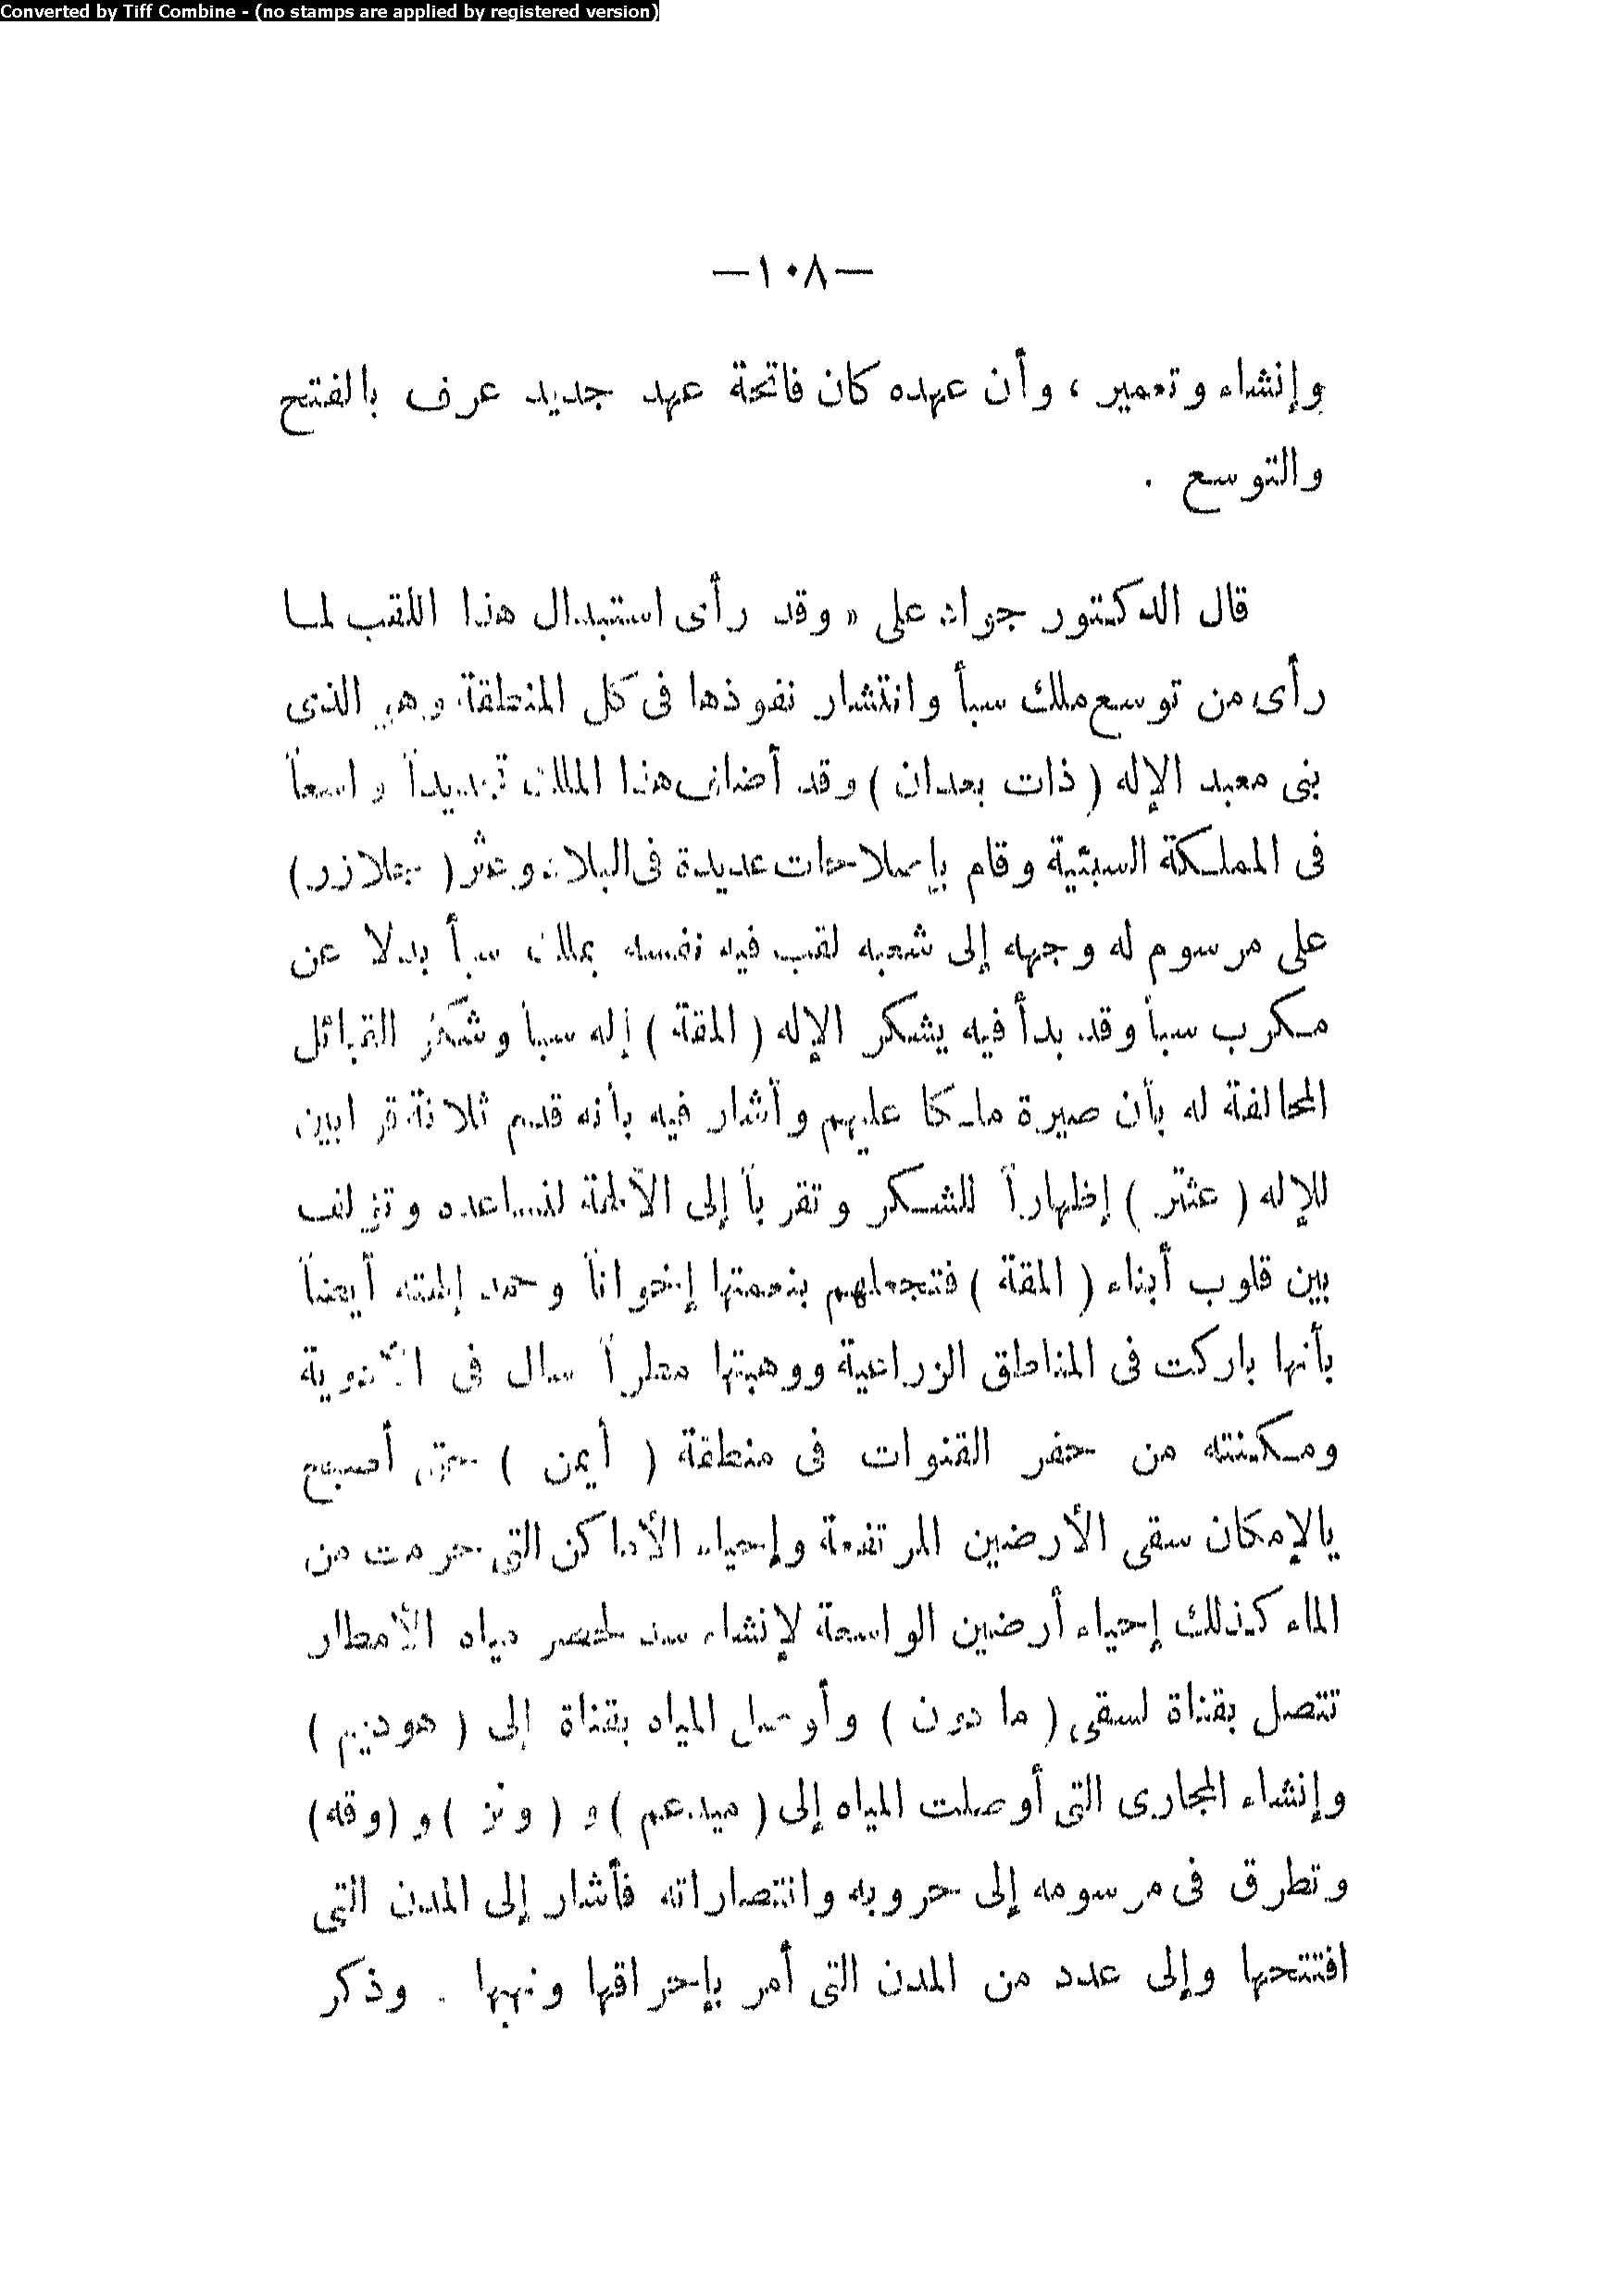 Converted by Tiff Combine - (no stamps are applied by registered version)
—١٠٨—
وإنشاء وتعمير ، وأن عهده كان فاتحة عهد جديد عرف بالفتح
والتوسع .
قال الدكتور جواد على « وقد رأى استبدال هذا اللقب لما
رأى من توسع ملك سبأ وانتشار نفوذها فى كل المنطقة وهو الذى
بنى معبد الإله ( ذات بعدان ) وقد أضاف هذا الملك تجديداً واسعاً
فى المملكة السبئية وقام بإصلاحات عديدة فى البلاد وعثر ( جلازر )
على مرسوم له وجهه إلى شعبه لقب فيه نفسه بملك سبأ بدلا عن
مكرب سبأ وقد بدأ فيه يشكر الإله ( المقة ) إله سبأ وشكر القبائل
المحالفة له بأن صيرة ملكا عليهم وأشار فيه بأنه قدم ثلاثة قرابين
للإله ( عثتر ) إظهاراً للشكر وتقرباً إلى الآلهة لتساعده وتؤلف
بين قلوب أبناء ( المقة ) فتجعلهم بنعمتها إخواناً وحمد إلهته أيضاً
بأنها باركت فى المناطق الزراعية ووهبتها مطراً سال فى الأودية
ومكنته من حفر القنوات فى منطقة ( أيمن ) حتى أصبح
بالإمكان سقى الأرضين المرتفعة وإحياء الأماكن التى حرمت من
الماء كذلك إحياء أرضين الواسعة لإنشاء سد لحصر مياه الأمطار
تتصل بقناة لسقى ( مادون ) وأوصل المياه بقناة إلى ( هوديم )
وإنشاء المجارى التى أوصلت المياه إلى ( ميدعم ) و ( وتر ) و ( وقه )
وتطرق فى مرسومه إلى حروبه وانتصاراته فأشار إلى المدن التى
افتتحها وإلى عدد من المدن التى أمر بإحراقها ونهبها . وذكر